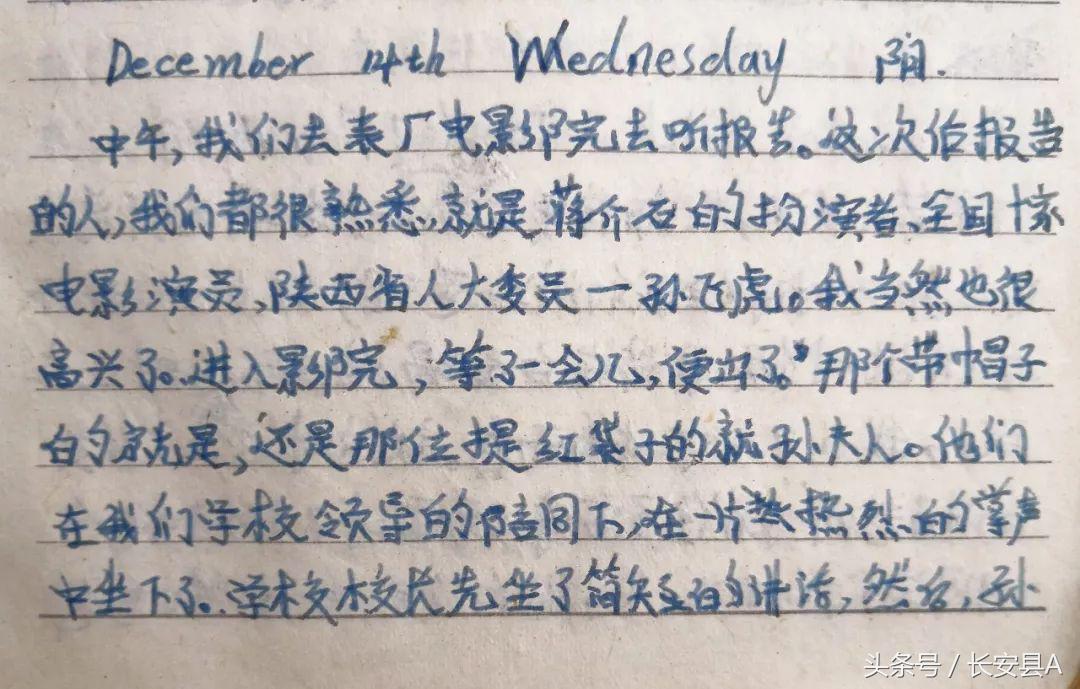 December 14th Wednesday 阴.
中午,我们去表厂电影院去听报告。这次作报告
的人,我们都很熟悉,就是蒋介石的扮演者、全国十家
电影演员,陕西省人大委员一孙飞虎。我当然也很
高兴了。进入影院,等了一会儿,便出了。"那个带帽子
的就是,还是那位提红袋子的就孙夫人。他们
在我们学校领导的陪同下,在一片热烈的掌声
中坐下了。学校校长先坐了简短的讲话,然后,孙
头条号 / 长安县A